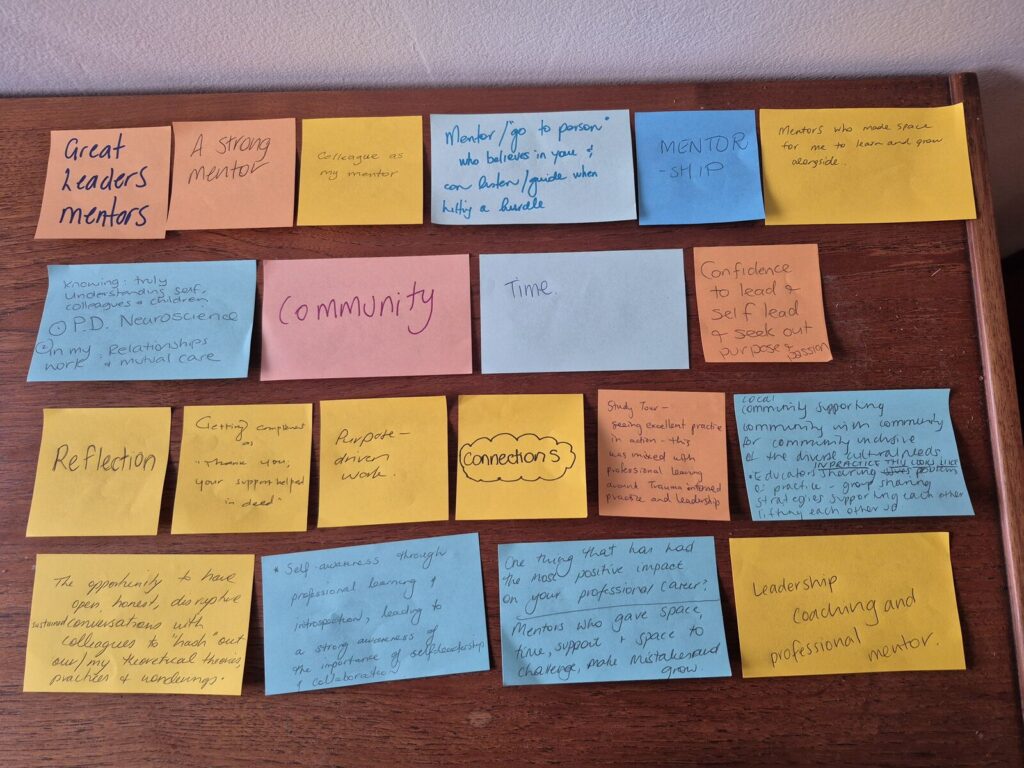 Great
Leaders
mentors
A strong
mentor
Colleague as
my mentor
Mentor/"go to person"
who believes in you &
can listen/guide when
hitting a hurdle
MENTOR
-SHIP
Mentors who made space
for me to learn and grow
alongside.
Knowing: truly
Understanding self,
colleagues & children
P.D. Neuroscience
in my Relationships
work & mutual care
Community
Time.
Confidence
to lead &
self lead
& seek out
purpose &
passion
Reflection
Getting
as
"Thank you,
your support helped
in deed"
Purpose-
driven
work.
Connections
Study Tour -
seeing excellent practice
in action - this
was mixed with
professional learning
around Trauma informed
practice and leadership
Local
Community supporting
community with community
for community inclusive
of the diverse cultural needs
IN PRACTICE THIS LOOKS LIKE
• Educators sharing
practice - group sharing
strategies supporting each other
lifting each other up
The opportunity to have
open, honest, disruptive
sustained conversations with
colleagues to "hash" out
our/my theoretical theories,
practices & wonderings.
* Self-awareness through
professional learning &
introspection, leading to
a strong awareness of
the importance of self leadership
& collaboration
One thing that has had
the most positive impact
on your professional career?
Mentors who gave space,
time, support & space to
challenge, make mistakes and
grow
Leadership
coaching and
professional mentor.